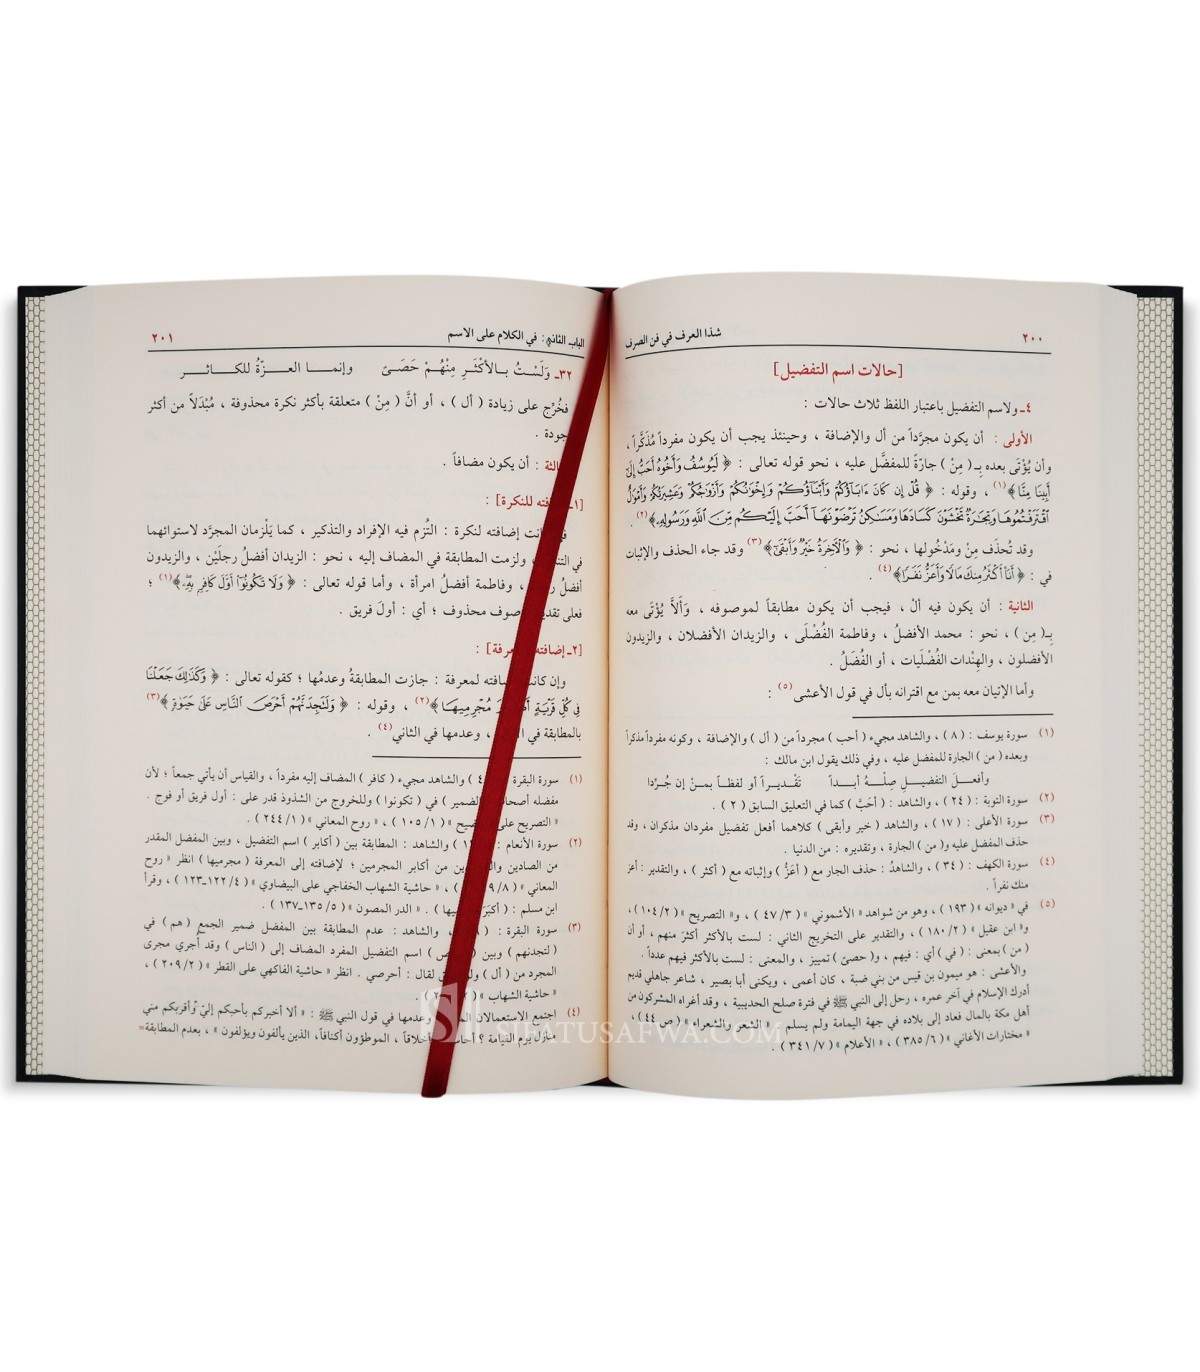 ٢٠٠
شذا العرف في فن الصرف
[حالات اسم التفضيل]
٤ـ ولاسم التفضيل باعتبار اللفظ ثلاث حالات :
الأولى : أن يكون مجرَّداً من أل والإضافة ، وحينئذ يجب أن يكون مفرداً مُذَكَّراً ،
وأن يُؤْتَى بعده بـ( مِنْ ) جارّةً للمفضَّل عليه ، نحو قوله تعالى : ﴿ لَيُوسُفُ وَأَخُوهُ أَحَبُّ إِلَىٰ
أَبِينَا مِنَّا ﴾(١) ، وقوله : ﴿ قُلْ إِن كَانَ ءَابَآؤُكُمْ وَأَبْنَآؤُكُمْ وَإِخْوَٰنُكُمْ وَأَزْوَٰجُكُمْ وَعَشِيرَتُكُمْ وَأَمْوَٰلٌ
ٱقْتَرَفْتُمُوهَا وَتِجَٰرَةٌ تَخْشَوْنَ كَسَادَهَا وَمَسَٰكِنُ تَرْضَوْنَهَآ أَحَبَّ إِلَيْكُم مِّنَ ٱللَّهِ وَرَسُولِهِۦ ﴾(٢) .
وقد تُحذَف مِنْ ومَدْخُولها ، نحو : ﴿ وَٱلْآخِرَةُ خَيْرٌ وَأَبْقَىٰٓ ﴾(٣) وقد جاء الحذف والإثبات
في : ﴿ أَنَا۠ أَكْثَرُ مِنكَ مَالًا وَأَعَزُّ نَفَرًا ﴾(٤) .
الثانية : أن يكون فيه ألْ ، فيجب أن يكون مطابقاً لموصوفه ، وَأَلاَّ يُؤْتَى معه
بـ( مِن ) ، نحو : محمد الأفضلُ ، وفاطمة الفُضْلَى ، والزيدان الأفضلان ، والزيدون
الأفضلون ، والهِنْدات الفُضْلَيات ، أو الفُضَلُ .
وأما الإتيان معه بمن مع اقترانه بأل في قول الأعشى(٥) :
(١) سورة يوسف : ( ٨ ) ، والشاهد مجيء ( أحب ) مجرداً من ( أل ) والإضافة ، وكونه مفرداً مذكراً
وبعده ( من ) الجارة للمفضل عليه ، وفي ذلك يقول ابن مالك :
وأفعـلَ التفضيـلِ صِلْـهُ أبـداً تَقْـديـراً أو لفظـاً بمـنْ إن جُـرِّدا
(٢) سورة التوبة : ( ٢٤ ) ، والشاهد : ( أحَبَّ ) كما في التعليق السابق ( ٢ ) .
(٣) سورة الأعلى : ( ١٧ ) ، والشاهد ( خير وأبقى ) كلاهما أفعل تفضيل مفردان مذكران ، وقد
حذف المفضل عليه و( من ) الجارة ، وتقديره : من الدنيا .
(٤) سورة الكهف : ( ٣٤ ) ، والشاهدُ : حذف الجار مع ( أعَزُّ ) وإثباته مع ( أكثر ) ، والتقدير : أعز
منك نفراً .
(٥) في « ديوانه » ( ١٩٣ ) ، وهو من شواهد « الأشموني » ( ٣/ ٤٧ ) ، و« التصريح » ( ٢/ ١٠٤ ) ،
و« ابن عقيل » ( ٢/ ١٨٠ ) ، والتقدير على التخريج الثاني : لست بالأكثر أكثرَ منهم ، أو أن
( من ) بمعنى : ( في ) أي : فيهم ، و( حصىً ) تمييز ، والمعنى : لست بالأكثر فيهم عدداً .
والأعشى : هو ميمون بن قيس من بني ضبة ، كان أعمى ، ويكنى أبا بصير ، شاعر جاهلي قديم
أدرك الإسلام في آخر عمره ، رحل إلى النبي ﷺ في فترة صلح الحديبية ، وقد أغراه المشركون من
أهل مكة بالمال فعاد إلى بلاده في جهة اليمامة ولم يسلم . « الشعر والشعراء » ( ص ٤٤ ) ،
« مختارات الأغاني » ( ٦/ ٣٨٥ ) ، « الأعلام » ( ٧/ ٣٤١ ) .
الباب الثاني : في الكلام على الاسم
٢٠١
٣٢ـ وَلَسْـتُ بـالأكْثَـرِ مِنْهُـمْ حَصَـىً وإنمـا العـزَّةُ للكـاثـر
فخُرِّج على زيادة ( أل ) ، أو أنَّ ( مِنْ ) متعلقة بأكثر نكرة محذوفة ، مُبْدَلاً من أكثر
جودة .
الثة : أن يكون مضافاً .
[١ـ افته للنكرة] :
انت إضافته لنكرة : التُزم فيه الإفراد والتذكير ، كما يَلْزمان المجرَّد لاستوائهما
في التن ، ولزمت المطابقة في المضاف إليه ، نحو : الزيدان أفضلُ رجلَيْن ، والزيدون
أفضلُ ر ، وفاطمة أفضلُ امرأة ، وأما قوله تعالى : ﴿ وَلَا تَكُونُوٓا۟ أَوَّلَ كَافِرٍۭ بِهِۦ ﴾(١) ؛
فعلى تقدي وصوف محذوف ؛ أي : أولَ فريق .
[٢ـ إضافته عرفة] :
وإن كانت ضافته لمعرفة : جازت المطابقةُ وعدمُها ؛ كقوله تعالى : ﴿ وَكَذَٰلِكَ جَعَلْنَا
فِى كُلِّ قَرْيَةٍ أَكَ رَ مُجْرِمِيهَا ﴾(٢) ، وقوله : ﴿ وَلَتَجِدَنَّهُمْ أَحْرَصَ ٱلنَّاسِ عَلَىٰ حَيَوٰةٍ ﴾(٣)
بالمطابقة في ال ، وعدمها في الثاني(٤) .
(١) سورة البقرة ٤ ) والشاهد مجيء ( كافر ) المضاف إليه مفرداً ، والقياس أن يأتي جمعاً ؛ لأن
مفضله أصحا الضمير ) في ( تكونوا ) وللخروج من الشذوذ قدر على : أول فريق أو فوج .
« التصريح على يح » ( ١/ ١٠٥ ) ، « روح المعاني » ( ١/ ٢٤٤ ) .
(٢) سورة الأنعام : ١ ) والشاهد : المطابقة بين ( أكابر ) اسم التفضيل ، وبين المفضل المقدر
من الصادين وال ين من أكابر المجرمين ؛ لإضافته إلى المعرفة ( مجرميها ) انظر « روح
المعاني » ( ٨/ ٩ ) ، « حاشية الشهاب الخفاجي على البيضاوي » ( ٤/ ١٢٢ـ١٢٣ ) ، وقرأ
ابن مسلم : ( أكبَرَ يها ) . « الدر المصون » ( ٥/ ١٣٥ـ١٣٧ ) .
(٣) سورة البقرة : ( ، والشاهد : عدم المطابقة بين المفضل ضمير الجمع ( هم ) في
( لتجدنهم ) وبين ( ص ) اسم التفضيل المفرد المضاف إلى ( الناس ) وقد أُجري مجرى
المجرد من ( أل ) ول ق لقال : أحرصي . انظر « حاشية الفاكهي على القطر » ( ٢/ ٢٠٩ ) ،
« حاشية الشهاب » ( ٢ ) .
(٤) اجتمع الاستعمالان ال وعدمها في قول النبي ﷺ : « ألا أخبركم بأحبكم إليّ وأقربكم مني
منازل يوم القيامة ؟ أحا أخلاقاً ، الموطؤون أكنافاً، الذين يألفون ويؤلفون » ، بعدم المطابقة=
SIFATUSAFWA.COM